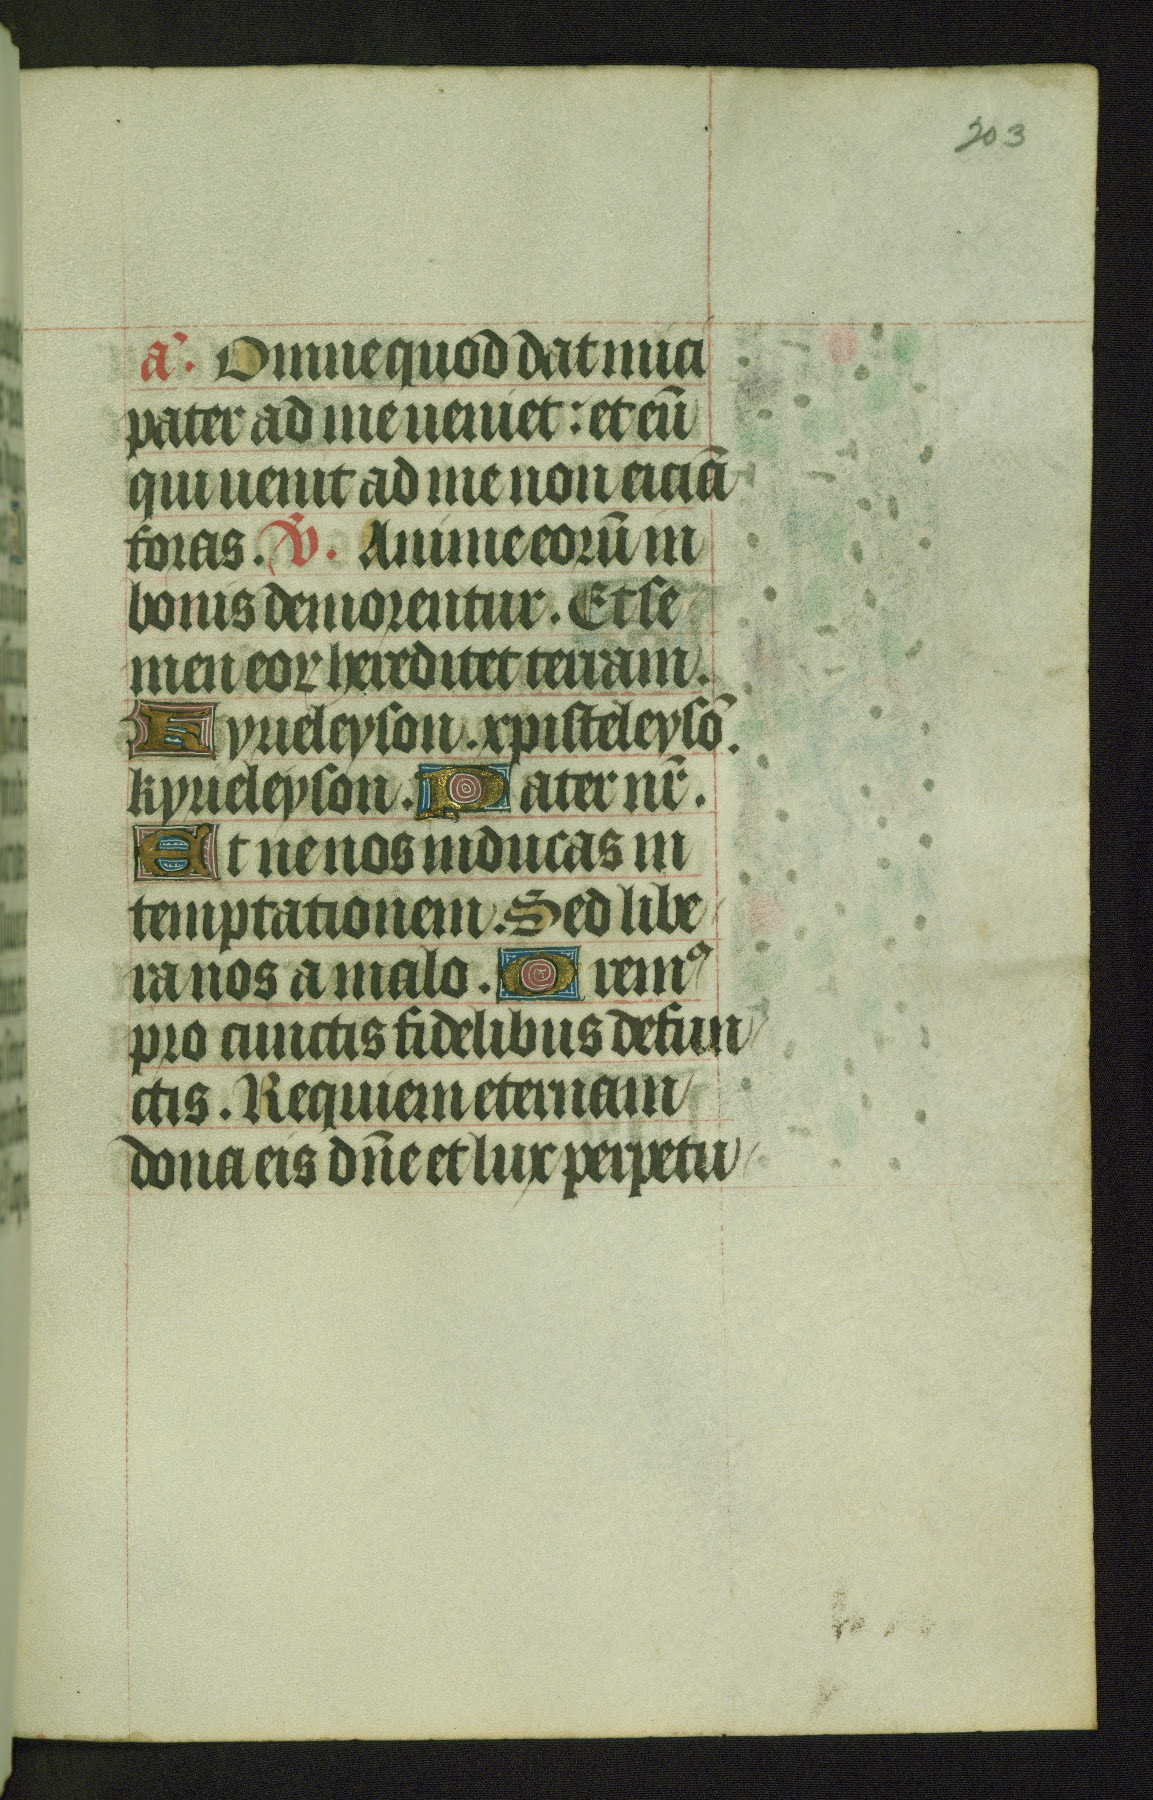 203
a͛. Omne quod dat mici
pater ad me ueniet : et eū
qui uenit ad me non eiciā
foras. V̄. Anime eorū in
bonis demorentur. Et se
men eoꝝ hereditet terram.
Kyrieleyson. xpisteleysō.
kyrieleyson. Pater nr̄.
Et ne nos inducas in
temptationem. Sed libe
ra nos a malo. Oremꝰ
pro cunctis fidelibus defun
ctis. Requiem eternam
dona eis dn̄e et lux perpetu